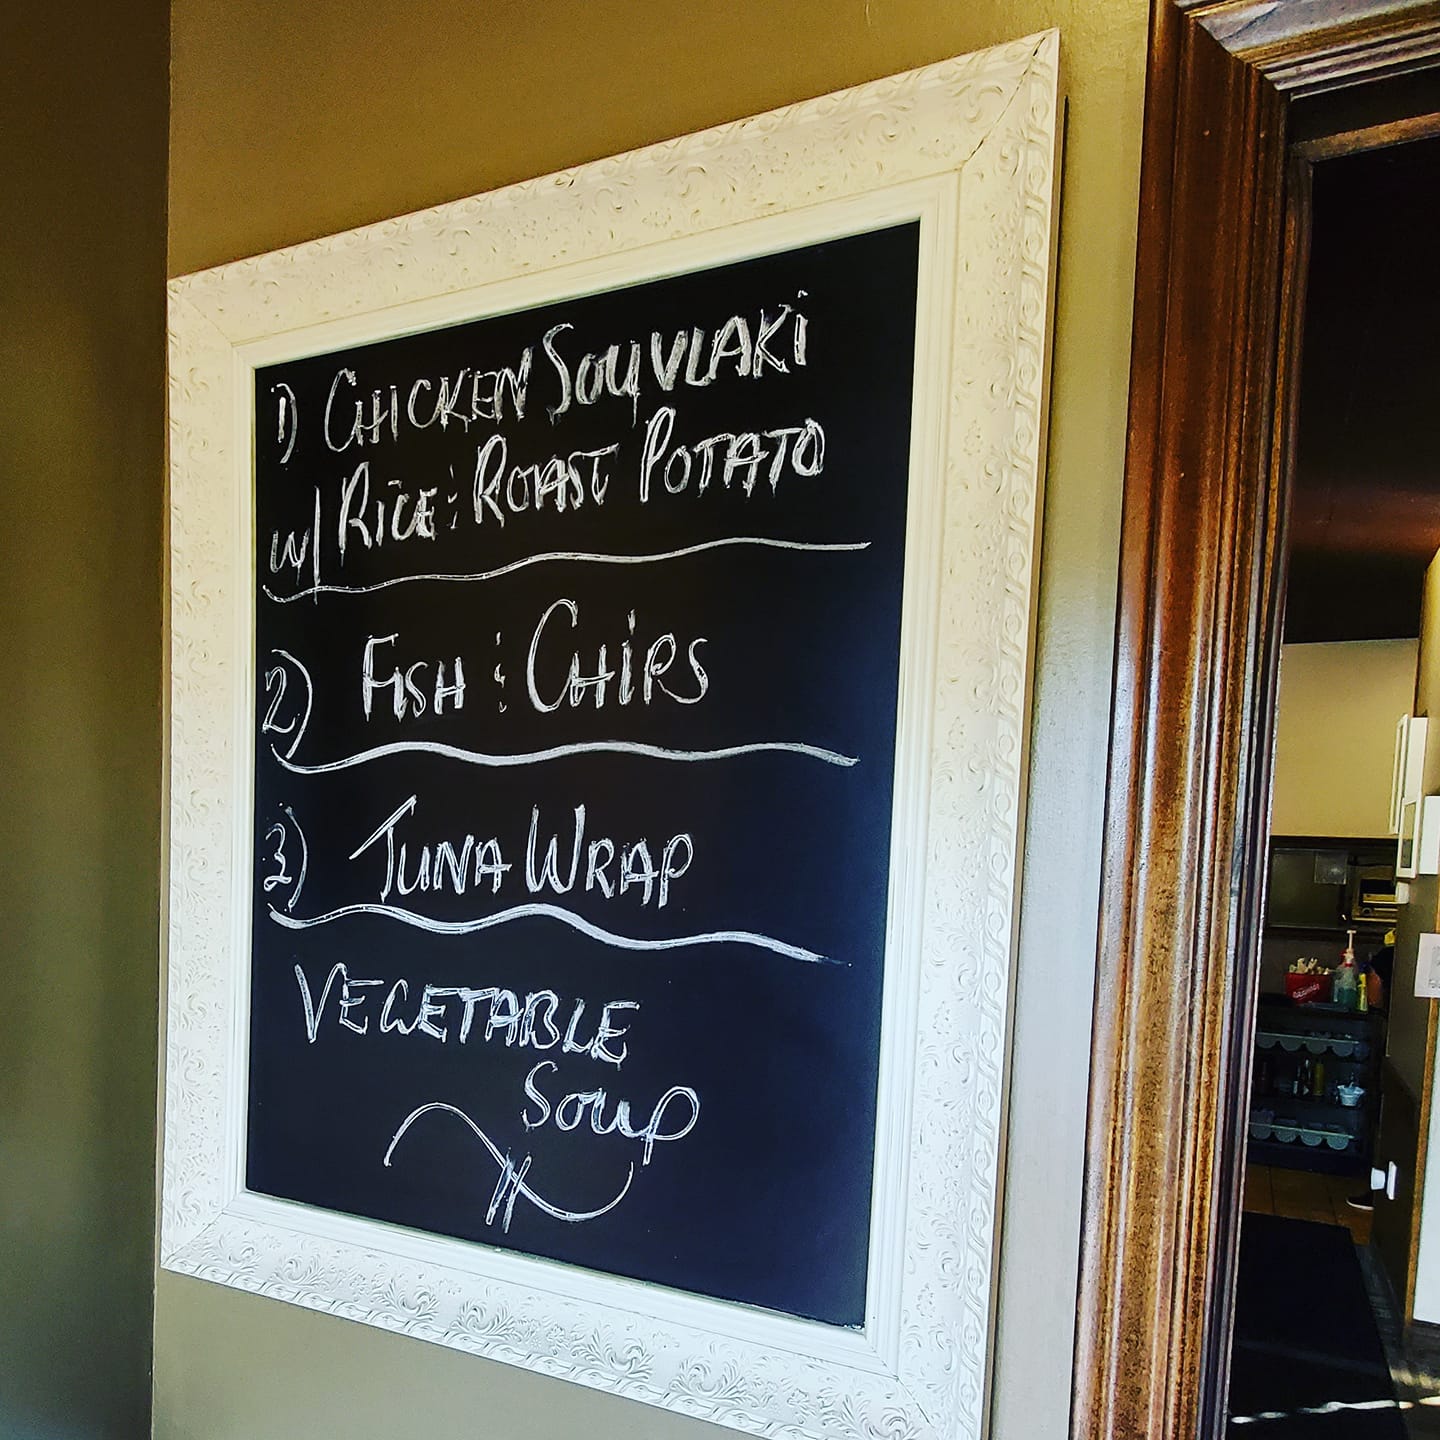 1) CHICKEN SOUVLAKi
w/ RiCE & ROAST POTATO
2) FISH & CHiPS
3) TUNA WRAP
VEGETABLE
SOUP